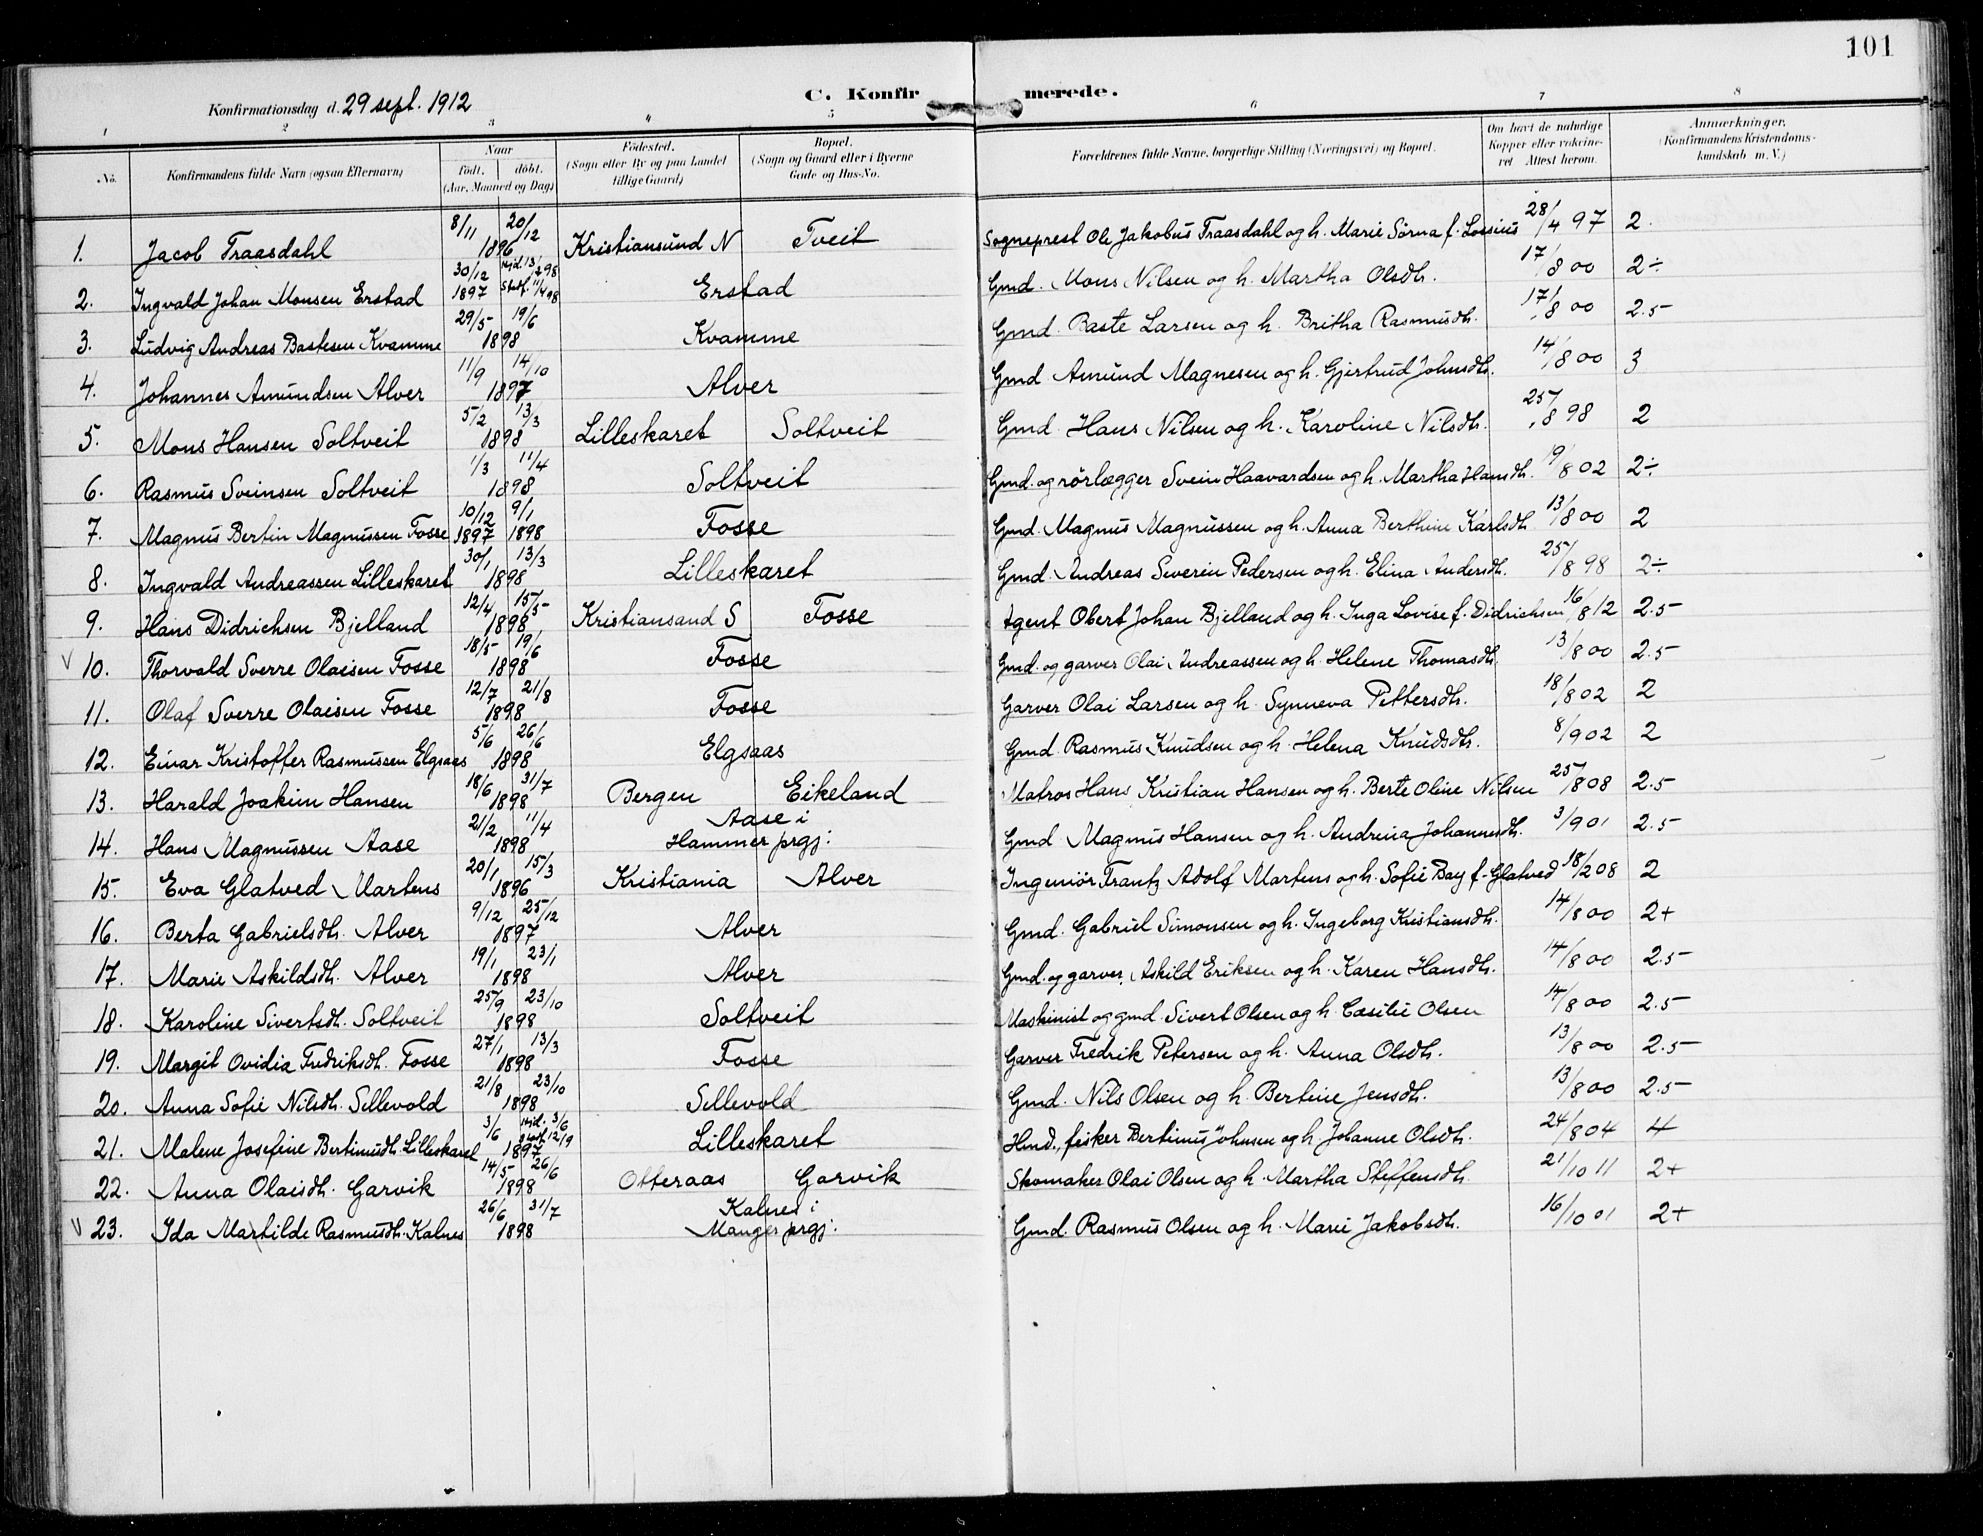 101
Konfirmationsdag d. 29 sept. 1912
C. Konfirmerede.
1 2 3 4 5 6 7 8
No. Konfirmandens fulde Navn (ogsaa Efternavn) Naar født. døbt. (Aar, Maaned og Dag) Fødested. (Sogn eller By og paa Landet tillige Gaard) Bopæl. (Sogn og Gaard eller i Byerne Gade og Hus-No. Forældrenes fulde Navne, borgerlige Stilling (Næringsvei) og Bopæl. Om havt de naturlige Kopper eller vakcineret Attest herom. Anmærkninger. (Konfirmandens Kristendomskundskab m. V.)
1. Jacob Traasdahl 8/11 20/12 1896 Kristiansund N Tveit Sogneprest Ole Jakobus Traasdahl og h. Marie Sørna f. Lossius 28/4 97 2
2. Ingvald Johan Monsen Erstad 30/12 1897 Hjd. 13/1 298 Stadf. 11/4 98 Erstad Gmd. Mons Nilsen og h. Martha Olsdh. 17/8 00 2÷
3. Ludvig Andreas Bastesen Kvamme 29/5 19/6 1898 Kvamme Gmd. Baste Larsen og h. Britha Rasmusdh. 17/8 00 2.5
4. Johannes Amundsen Alver 11/9 14/10 1897 Alver Gmd Amund Magnesen og h. Gjertrud Johnsdh. 14/8 00 3
5. Mons Hansen Soltveit 5/2 13/3 1898 Lilleskaret Soltveit Gmd. Hans Nilsen og h. Karoline Nilsdh. 25/8 98 2
6. Rasmus Sveinsen Soltveit 1/3 11/4 1898 Soltveit Gmd. og rørlægger Svein Haavardsen og h. Martha Hansdh. 9/8 02 2÷
7. Magnus Bertin Magnussen Fosse 10/12 1897 9/1 1898 Fosse Gmd. Magnus Magnussen og h. Anna Berthine Karlsdh 13/8 00 2
8. Ingvald Andreassen Lilleskaret 30/1 13/3 1898 Lilleskaret Gmd. Andreas Severin Pedersen og h. Elina Andersdh. 25/8 98 2÷
9. Hans Didrichsen Bjelland 12/4 15/5 1898 Kristiansand S Fosse Agent Obert Johan Bjelland og h. Inga Lovise f. Didrichsen 16/8 12 2.5
V 10. Thorvald Sverre Olaisen Fosse 18/5 19/6 1898 Fosse Gmd. og garver Olai Andreassen og h. Helene Thomasdh. 13/8 00 2.5
11. Olaf Sverre Olaisen Fosse 12/7 21/8 1898 Fosse Garver Olai Larsen og h. Synneva Pettersdh. 18/8 02 2
12. Einar Kristoffer Rasmussen Elgsaas 5/6 26/6 1898 Elgsaas Gmd. Rasmus Knudsen og h. Helena Knudsdh. 8/9 02 2
13. Harald Joakim Hansen 18/6 31/7 1898 Bergen Eikeland Matros Hans Kristian Hansen og h. Berte Oline Nilsen 25/8 08 2.5
14. Hans Magnussen Aase 21/2 11/4 1898 Aase i Hammer prgj: Gmd Magnus Hansen og h. Andrina Johannesdh. 3/9 01 2.5
15. Eva Glatved Martens 20/1 15/3 1896 Kristiania Alver Ingeniør Frantz Adolf Martens og h. Sofie Bay f. Glatved 18/2 08 2
16. Berta Gabrielsdh. Alver 9/12 25/12 1897 Alver Gmd. Gabriel Simonsen og h. Ingeborg Kristiansdh. 14/8 00 2+
17. Marie Askildsdh. Alver 19/1 23/1 1898 Alver Gmd. og garver, Askild Eriksen og h. Karen Hansdh. 14/8 00 2.5
18. Karoline Sivertsdh. Soltveit 25/9 23/10 1898 Soltveit Maskinist og gmd. Sivert Olsen og h. Cæsilie Olsen 14/8 00 2.5
19. Margit Ovidia Fredriksdh. Fosse 27/1 13/3 1898 Fosse Garver Fredrik Petersen og h. Anna Olsdh. 13/8 00 2.5
20. Anna Sofie Nilsdh. Sellevold 21/8 23/10 1898 Sellevold Gmd. Nils Olsen og h. Bertine Jensdh. 13/8 00 2.5
21. Malene Josefine Bertinusdh. Lilleskaret 3/6 Hjd. 3/6 Stadf. 12/9 1897 Lilleskaret Hmd., fisker Bertinus Johnsen og h. Johanne Olsdh. 24/8 04 4
22. Anna Olaisdh. Garvik 14/5 26/6 1898 Otteraas Garvik Skomaker Olai Olsen og h. Martha Steffensdh. 21/10 11 2+
V 23. Ida Martilde Rasmusdh. Kalnes 26/6 31/7 1898 Kalnes i Manger prgj: Gmd. Rasmus Olsen og h. Marie Jakobsdh. 16/10 01 2+